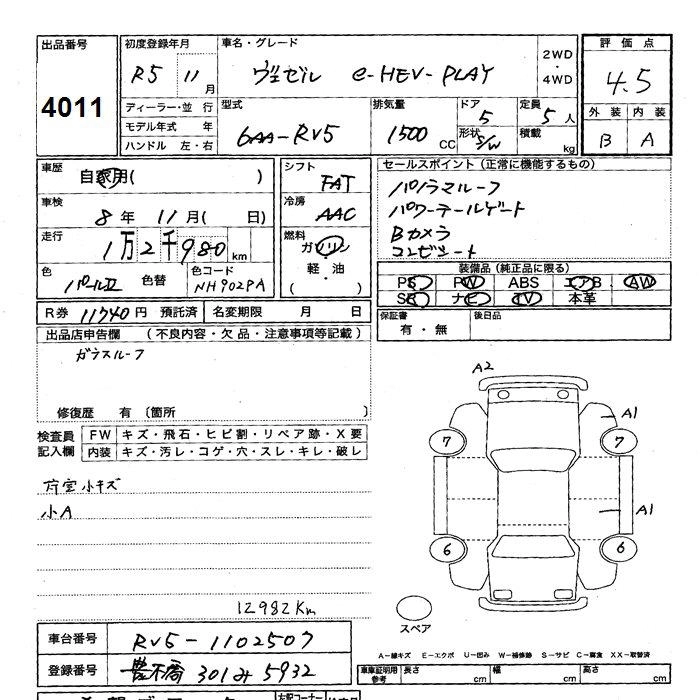 出品番号
4011
初度登録年月
R5 11 月
車名・グレード
ヴェゼル e-HEV-PLAY
2WD
・
4WD
評価点
4.5
外装 内装
B A
ディーラー・並 行
モデル年式 年
ハンドル 左・右
型式
6AA-RV5
排気量
1500 CC
ドア
5
形状
S/W
定員
5 人
積載
kg
車歴
自家用( )
車検
8 年 11 月( 日)
走行
1万2千980 km
色
パールⅡ
色替
色コード
NH902PA
シフト
FAT
冷房
AAC
燃料
ガソリン
・
軽・油
( )
セールスポイント(正常に機能するもの)
パノラマルーフ
パワーテールゲート
Bカメラ
コンビシート
装備品(純正品に限る)
PS PW ABS エアB AW
SR ナビ TV 本革
R券 11740 円 預託済 名変期限 月 日
保証書
有・無
後日品
出品店申告欄 (不良内容・欠品・注意事項等記載)
ガラスルーフ
修復歴 有 〔箇所 〕
検査員
記入欄
FW キズ・飛石・ヒビ割・リペア跡・X要
内装 キズ・汚レ・コゲ・穴・スレ・キレ・破レ
荷室小キズ
小A
12982Km
A2
A1
7
7
A1
6
6
スペア
A—線キズ E—エクボ U—凹み W—補修跡 S—サビ C—腐食 XX—取替済
車台番号
RV5-1102507
登録番号
豊橋 301 み 5932
車庫証明用
参考
長さ cm
幅 cm
高さ cm